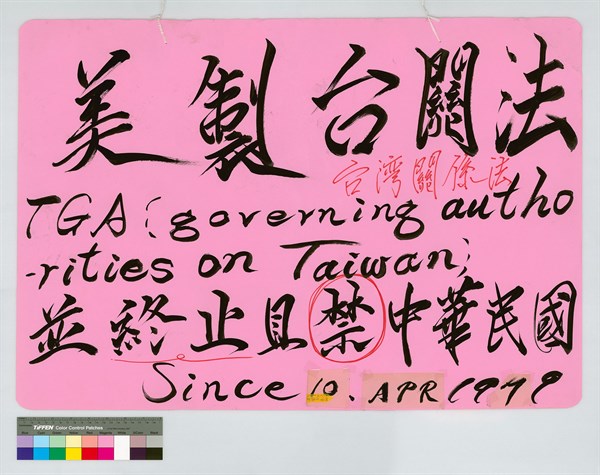 美製台關法
台湾關係法
TGA (governing autho
-rities on Taiwan;
並終止且禁中華民國
Since 10. APR 1979
TIFFEN Color Control Patches